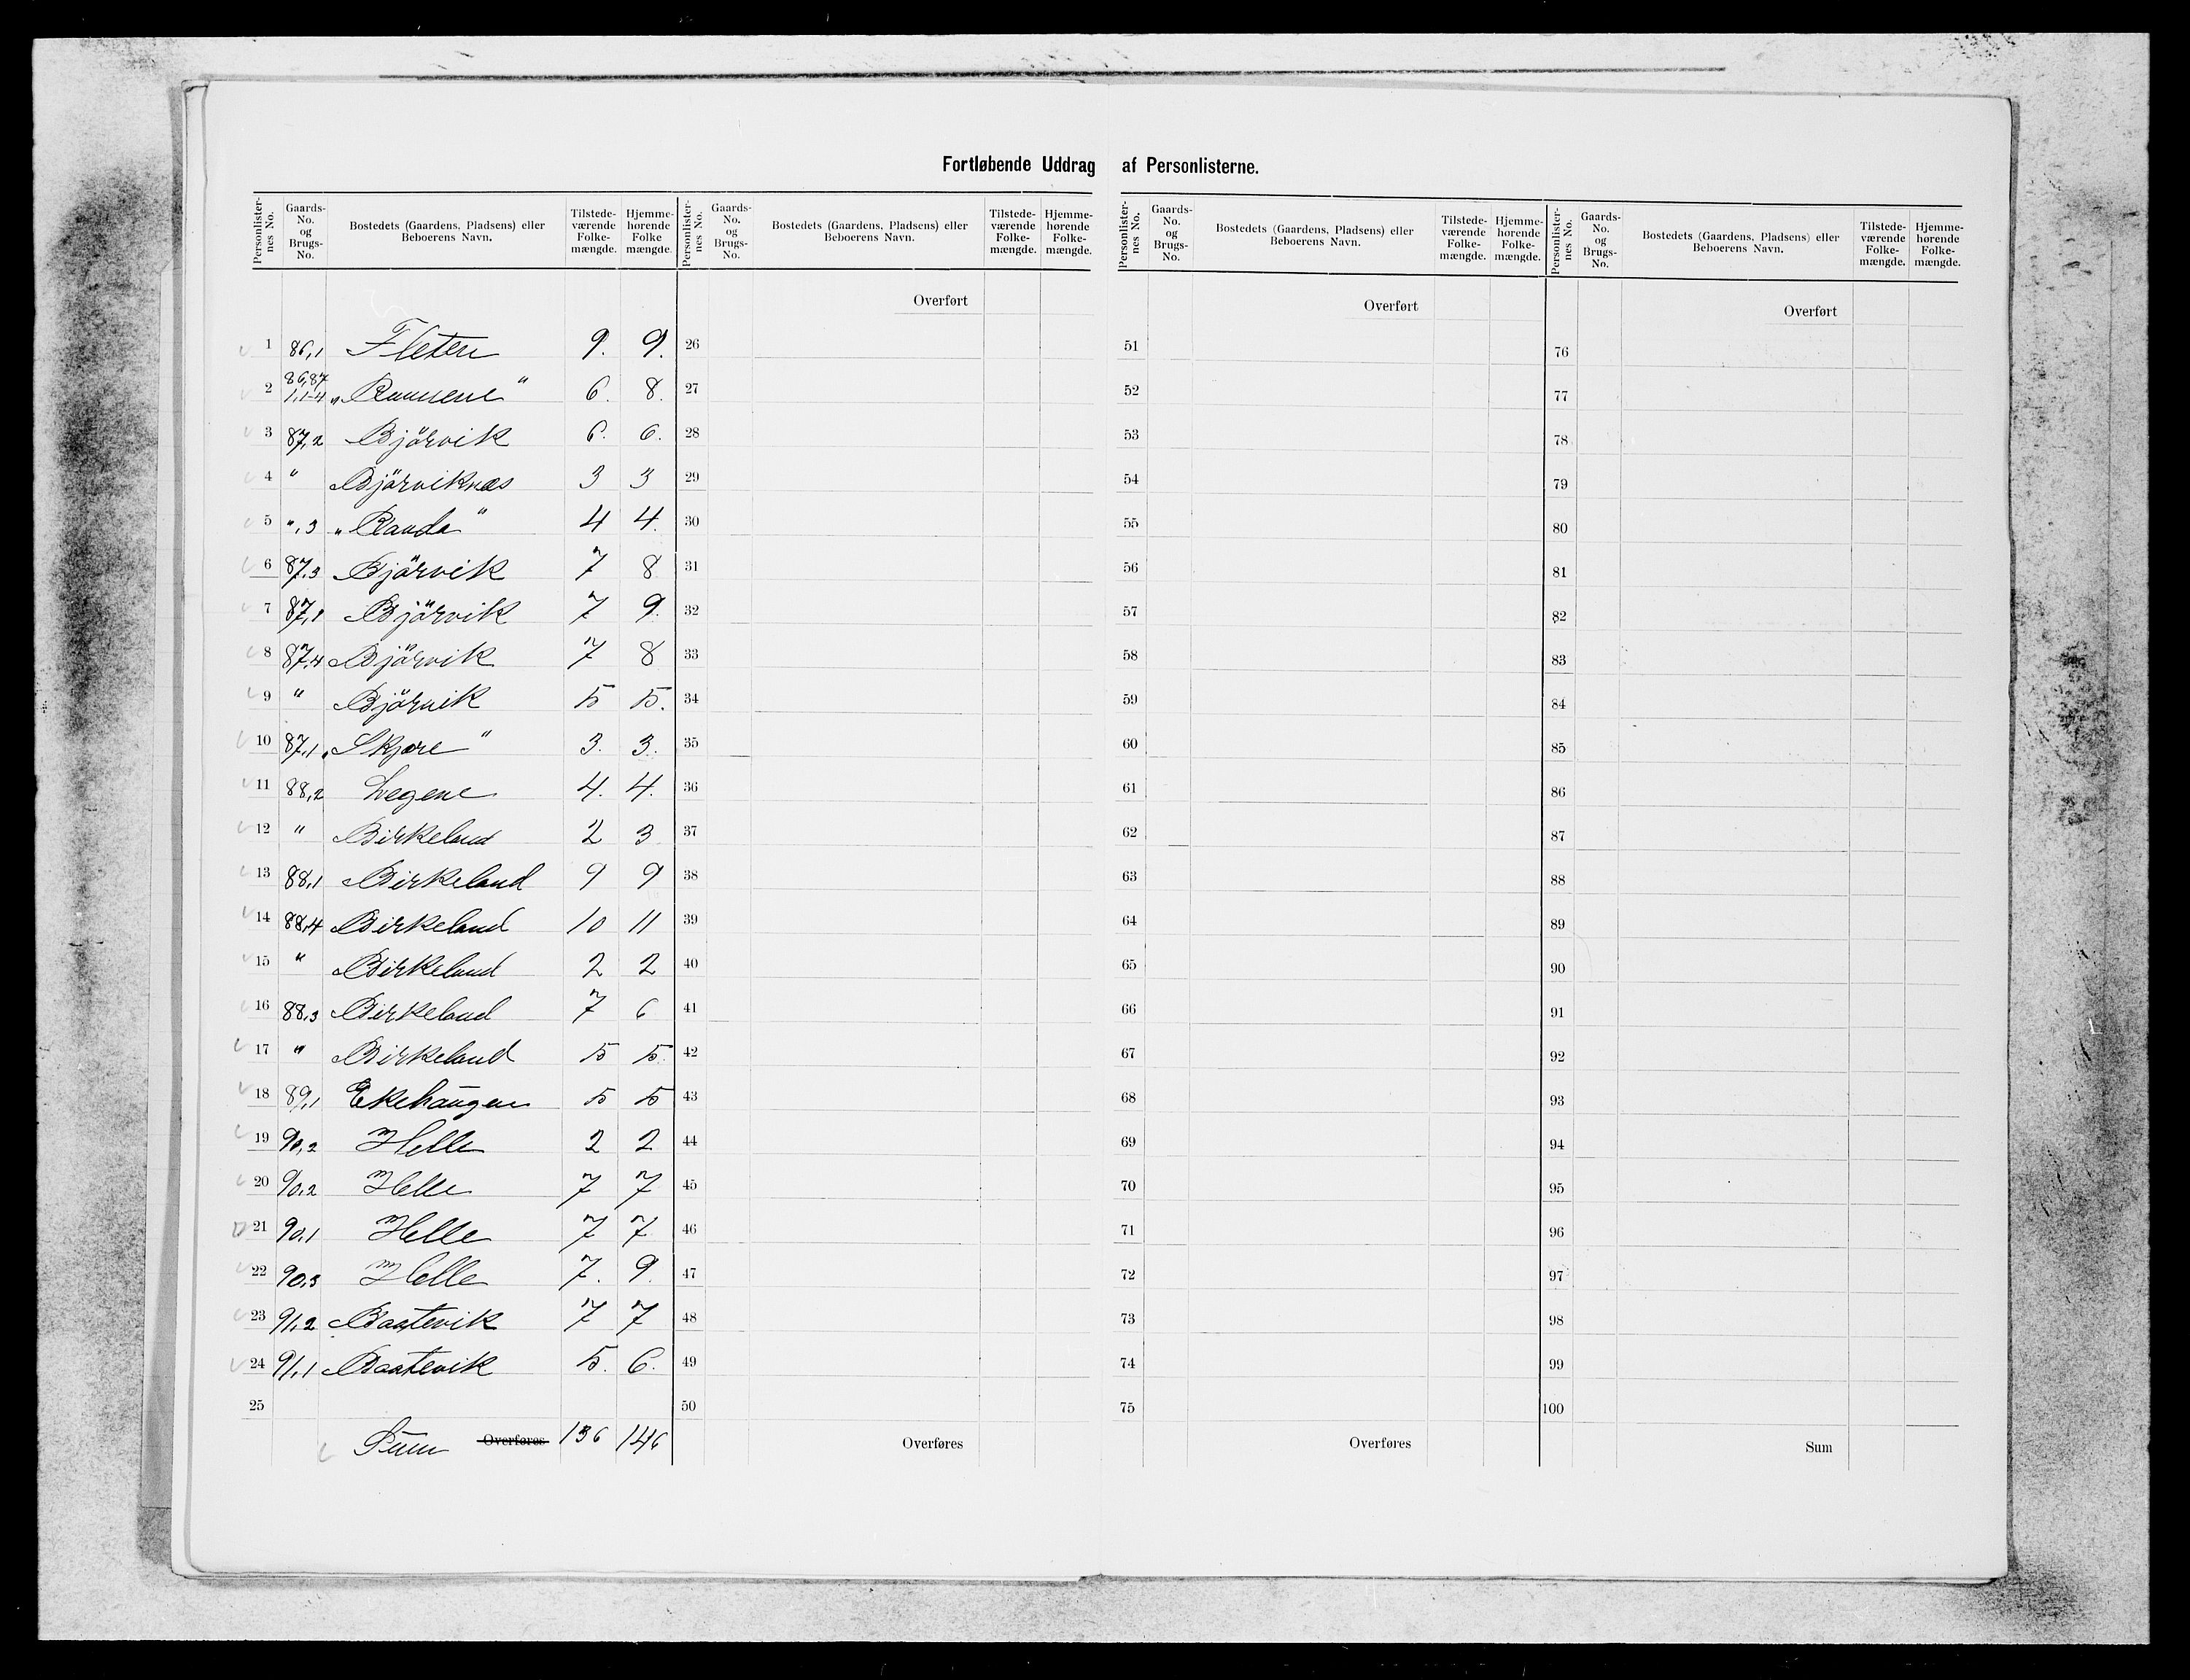 Fortløbende Uddrag af Personlisterne.
Personlisternes No. Gaards-No. og Brugs-No. Bostedets (Gaardens, Pladsens) eller Beboerens Navn. Tilstedeværende Folkemængde. Hjemmehørende Folkemængde.
Personlisternes No. Gaards-No. og Brugs-No. Bostedets (Gaardens, Pladsens) eller Beboerens Navn. Tilstedeværende Folkemængde. Hjemmehørende Folkemængde.
Personlisternes No. Gaards-No. og Brugs-No. Bostedets (Gaardens, Pladsens) eller Beboerens Navn. Tilstedeværende Folkemængde. Hjemmehørende Folkemængde.
Personlisternes No. Gaards-No. og Brugs-No. Bostedets (Gaardens, Pladsens) eller Beboerens Navn. Tilstedeværende Folkemængde. Hjemmehørende Folkemængde.
Overført Overført Overført
1 86,1 Fleten 9. 9. 26 51 76
2 86,87 1,1-4 6. 8. 27 52 77
3 87,2 Björvik 6. 6. 28 53 78
4 " Björviknæs 3 3 29 54 79
5 ",3 „Randa" 4 4. 30 55 80
6 87,3 Björvik 7 8 31 56 81
7 87,1 Björvik 7 9. 32 57 82
8 87,4 Björvik 7 8 33 58 83
9 " Björvik 5 5. 34 59 84
10 87,1 „Skjære" 3. 3. 35 60 85
11 88,2 Legene 4. 4. 36 61 86
12 " Birkeland 2 3 37 62 87
13 88,1 Birkeland 9 9 38 63 88
14 88,4 Birkeland 10 11 39 64 89
15 " Birkeland 2 2 40 65 90
16 88,3 Birkeland 7 6 41 66 91
17 " Birkeland 5 5. 42 67 92
18 89,1 Ekehaugen 5 5 43 68 93
19 90,2 Helle 2 2 44 69 94
20 90,2 Helle 7 7 45 70 95
21 90,1 Helle 7 7 46 71 96
22 90,3 Helle 7. 9. 47 72 97
23 91,2 Baatevik 7 7 48 73 98
24 91,1 Baatevik 5. 6. 49 74 99
25 50 75 100
Sum Overføres 136 146 Overføres Overføres Sum